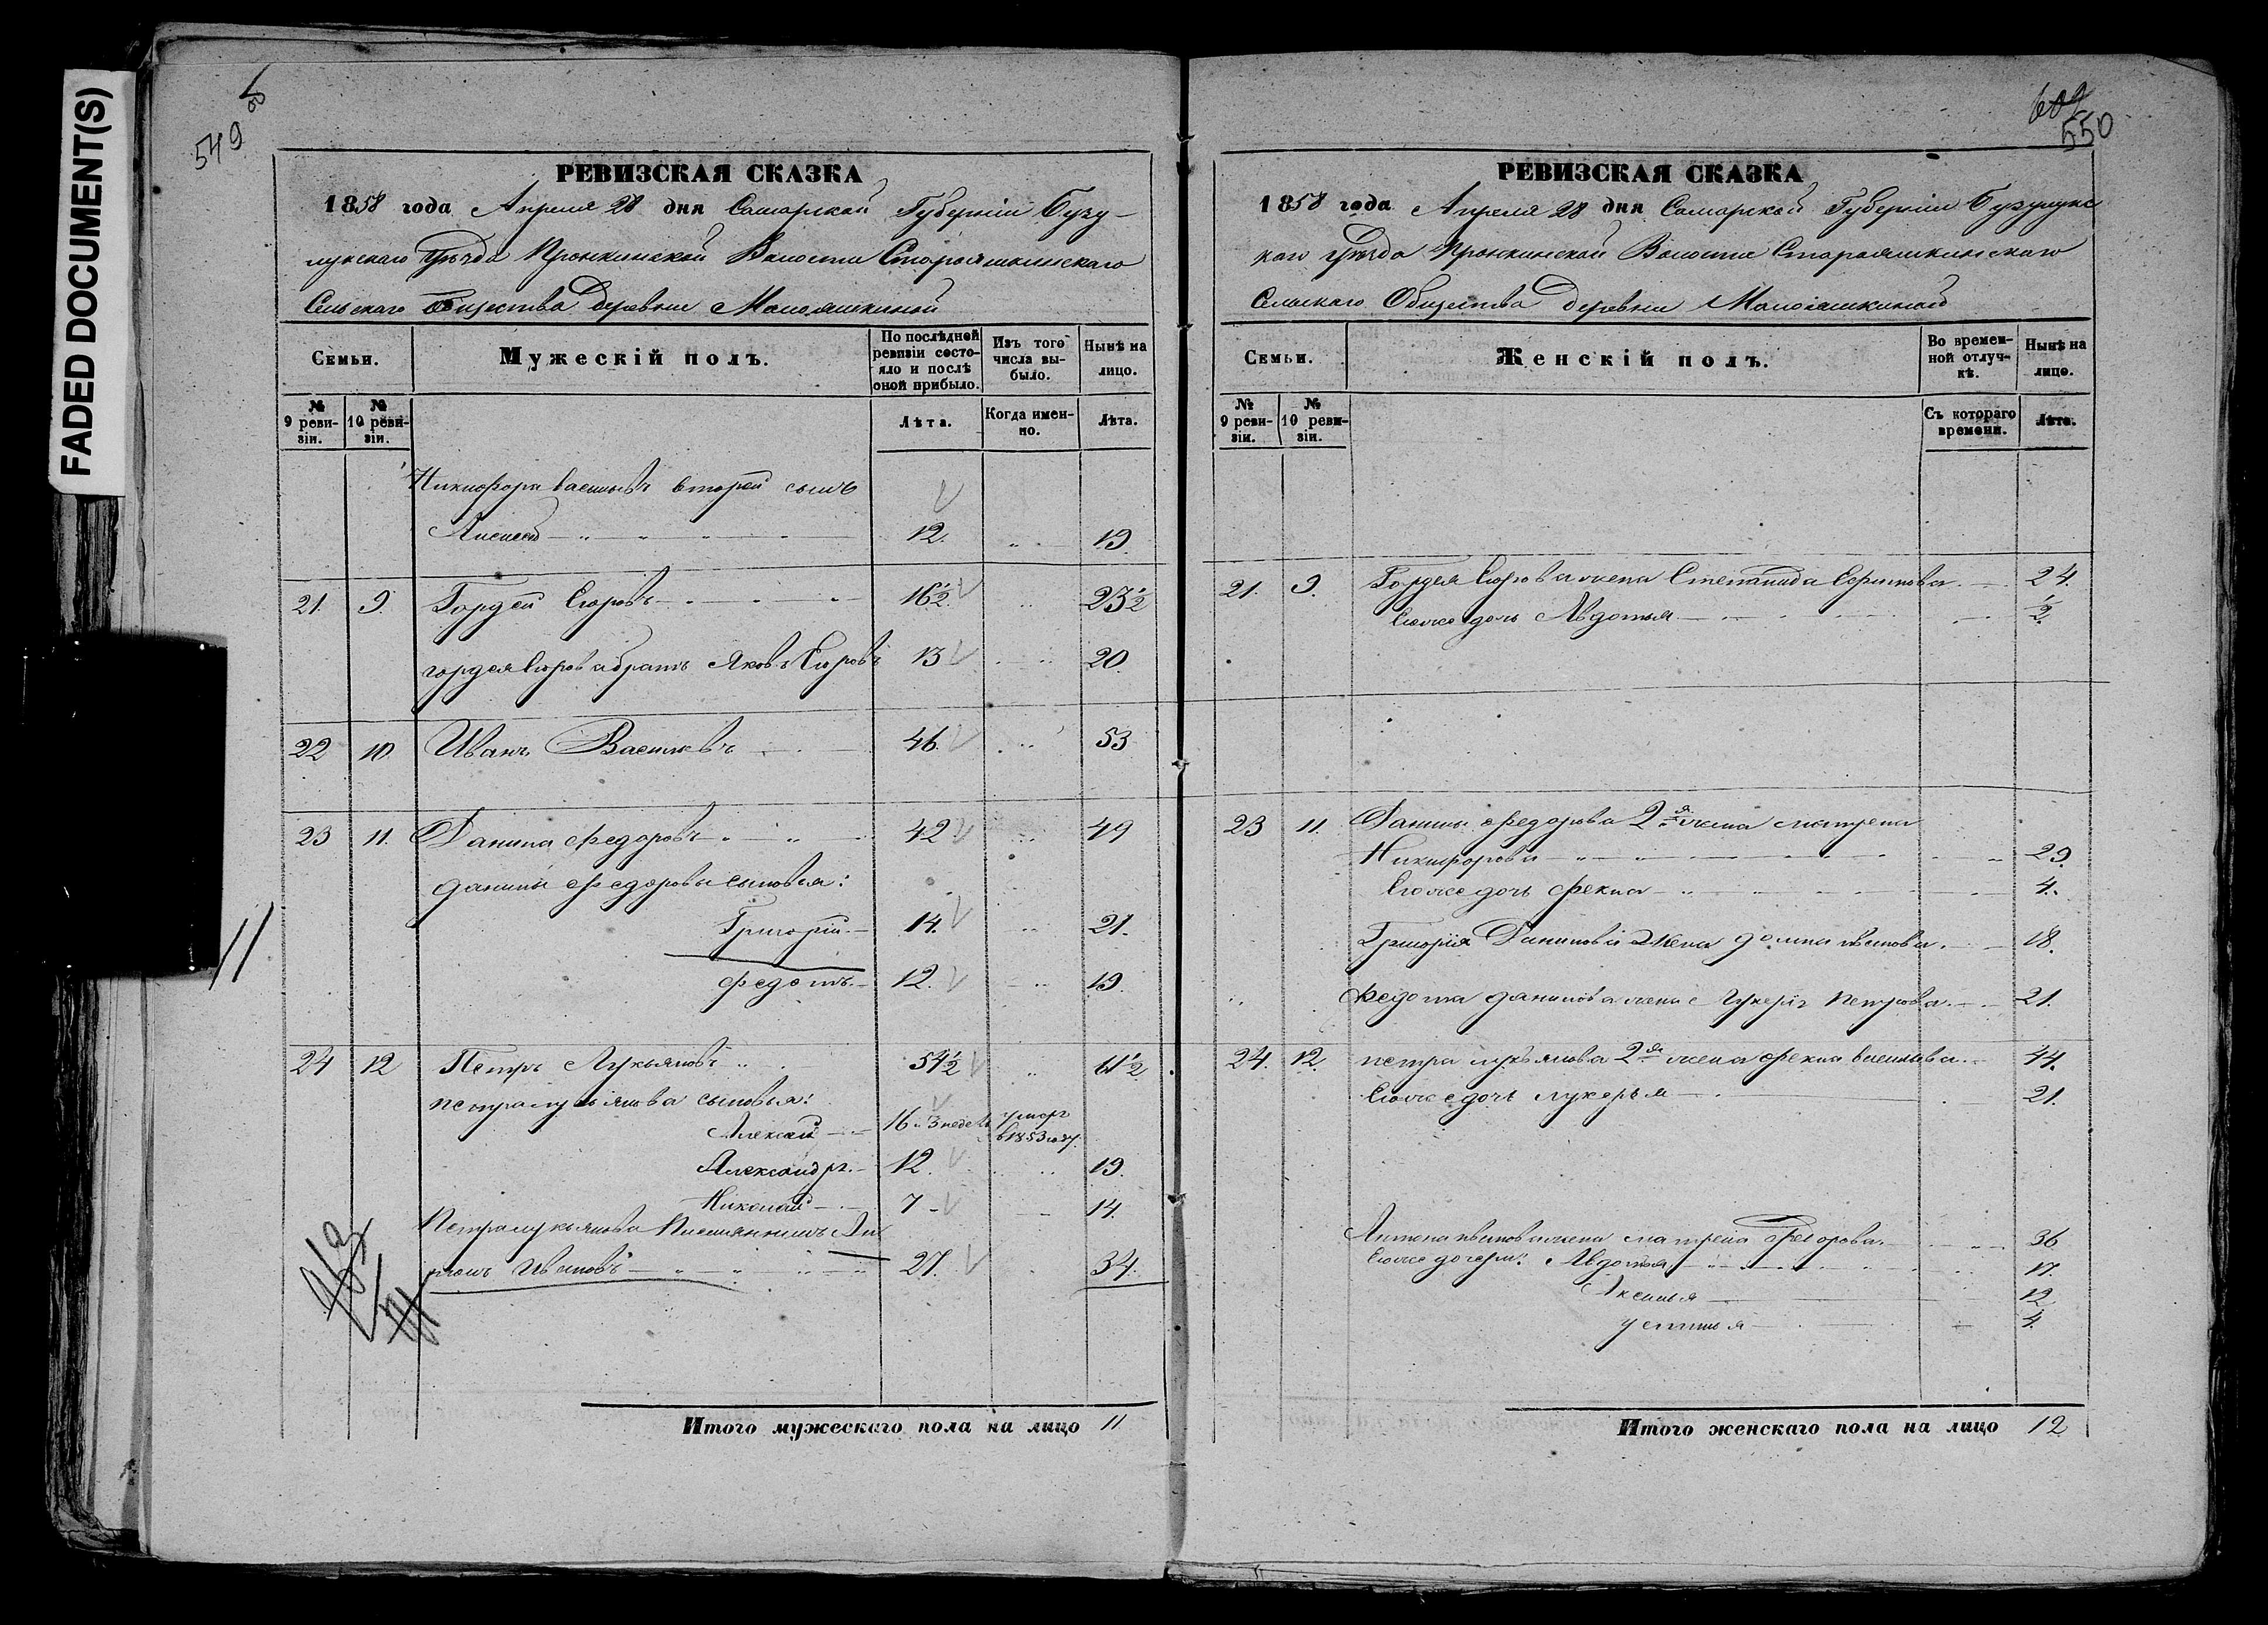 FADED DOCUMENT(S)
549 об
РЕВИЗСКАЯ СКАЗКА
1858 года Апреля 28 дня Самарской Губерніи Бузу-
лукскаго Уѣзда Пронкинской Волости Старояшкинскаго
Сельскаго Общества Деревни Малояшкиной
Семьи.
Мужескій полъ.
По послѣдней ревизіи состояло и послѣ оной прибыло.
Изъ того числа выбыло.
Нынѣ на лицо.
№ 9 ревизіи.
№ 10 ревизіи.
Лѣта.
Когда именно.
Лѣта.
Никифора васильева второй сынъ
Алексей 12. 19.
21. 9. Гордей Егоровъ 16½ 23½
гордея Егорова братъ Яковъ Егоровъ 13 20.
22 10. Иванъ Васильевъ 46. 53
23 11. Данила Федоровъ 42 49
данилы Федорова сыновья:
Григорій 14. 21.
Федотъ 12. 19.
24 12 Петръ Лукьяновъ 54½ 61½
петра лукьянова сыновья:
Алексей 16 . 3 недел. умеръ
в 1853 году.
Александръ 12. 19.
Николай 7 14.
Петра лукьянова Племянникъ Ан-
тонъ Ивановъ 27. 34.
11
Итого мужескаго пола на лицо 11
609
550
РЕВИЗСКАЯ СКАЗКА
1858 года Апреля 28 дня Самарской Губерніи Бузулукс
каго Уѣзда Пронкинской Волости Старояшкинскаго
Сельскаго Общества Деревни Малояшкиной
Семьи.
Женскій полъ.
Во временной отлучкѣ.
Нынѣ на лицо.
№ 9 ревизіи.
№ 10 ревизіи.
Съ котораго времени.
Лѣта.
21. 9. Гордея Егорова жена Степанида Ефимова 24.
Еюже дочь Авдотья ½
23 11. Данилы Федорова 2я жена матрена
Никифорова 29.
Еюже дочь Фекла 4.
Григорія Данилова Жена домна ивановa. 18.
Федота данилова жена Гликерія Петрова 21.
24. 12. петра лукьянова 2я жена Фекла васильева 44.
Еюже дочь лукерья 21.
Антона иванова жена матрена Федорова 36
Еюже дочери: Авдотья 17.
Аксинья 12
устинья 4.
Итого женскаго пола на лицо 12